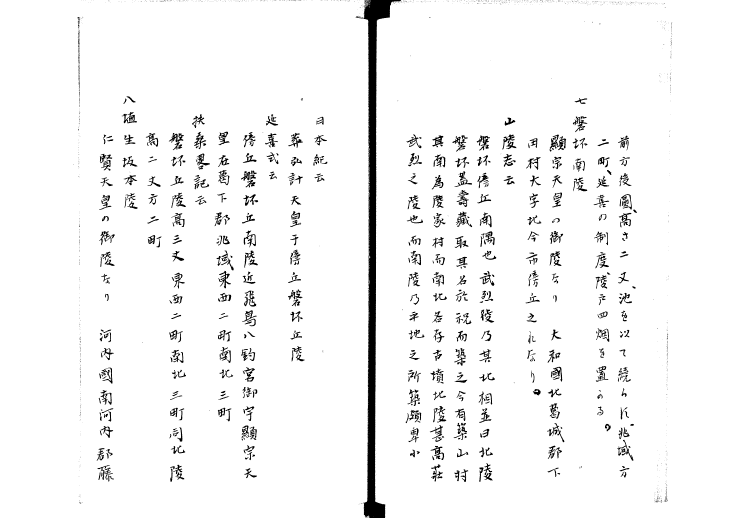 前方後圓、高さ二丈、池を以て繞らす、兆域方
二町、延喜の制度、陵戸四烟を置かる。
七 磐坏南陵
顯宗天皇の御陵なり 大和國北葛城郡下
田村大字北今市傍丘之れなり。
山陵志云
磐坏傍丘南隅也武烈陵乃其北相並曰北陵
磐坏蓋壽藏取其名於祝而築之今有築山村
其南為陵家村而南北各存古墳北陵甚高莊
武烈之陵也而南陵乃平地之所築頗卑小
日本紀云
葬弘計天皇于傍丘磐坏丘陵
延喜式云
傍丘磐坏丘南陵近飛鳥八釣宮御宇顯宗天
皇在葛下郡兆域東西二町南北三町
扶桑畧記云
磐坏丘陵高三丈東西二町南北三町同北陵
高二丈方二町
八 埴生坂本陵
仁賢天皇の御陵なり 河内國南河内郡藤